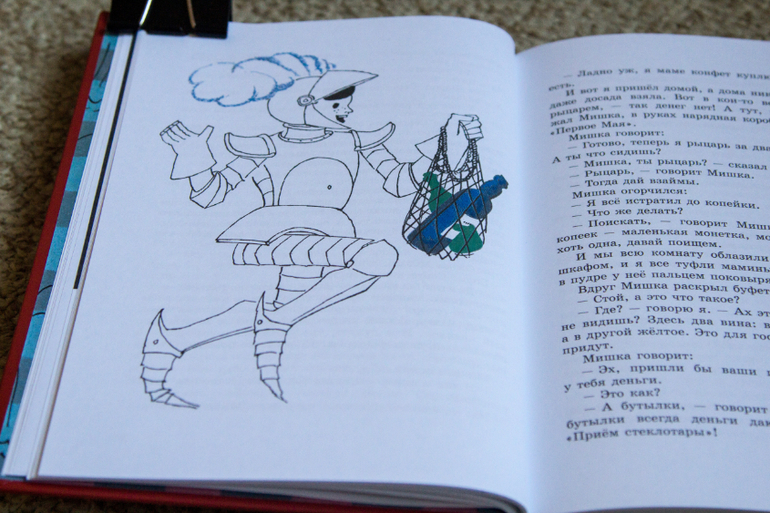 — Ладно уж, я маме конфет куплю
есть.
И вот я пришёл домой, а дома ник
даже досада взяла. Вот в кои-то ве
рыцарем, — так денег нет! А тут
жал Мишка, в руках нарядная короб
«Первое Мая».
Мишка говорит:
— Готово, теперь я рыцарь за два
А ты что сидишь?
— Мишка, ты рыцарь? — сказал
— Рыцарь, — говорит Мишка.
— Тогда дай взаймы.
Мишка огорчился:
— Я всё истратил до копейки.
— Что же делать?
— Поискать, — говорит Миш
копеек — маленькая монетка, мо
хоть одна, давай поищем.
И мы всю комнату облазили
шкафом, и я все туфли мамины
в пудре у неё пальцем поковыря
Вдруг Мишка раскрыл буфет
— Стой, а это что такое?
— Где? — говорю я. — Ах эт
не видишь? Здесь два вина: в
а в другой жёлтое. Это для гос
придут.
Мишка говорит:
— Эх, пришли бы ваши г
у тебя деньги.
— Это как?
— А бутылки, — говорит
бутылки всегда деньги даю
«Приём стеклотары»!